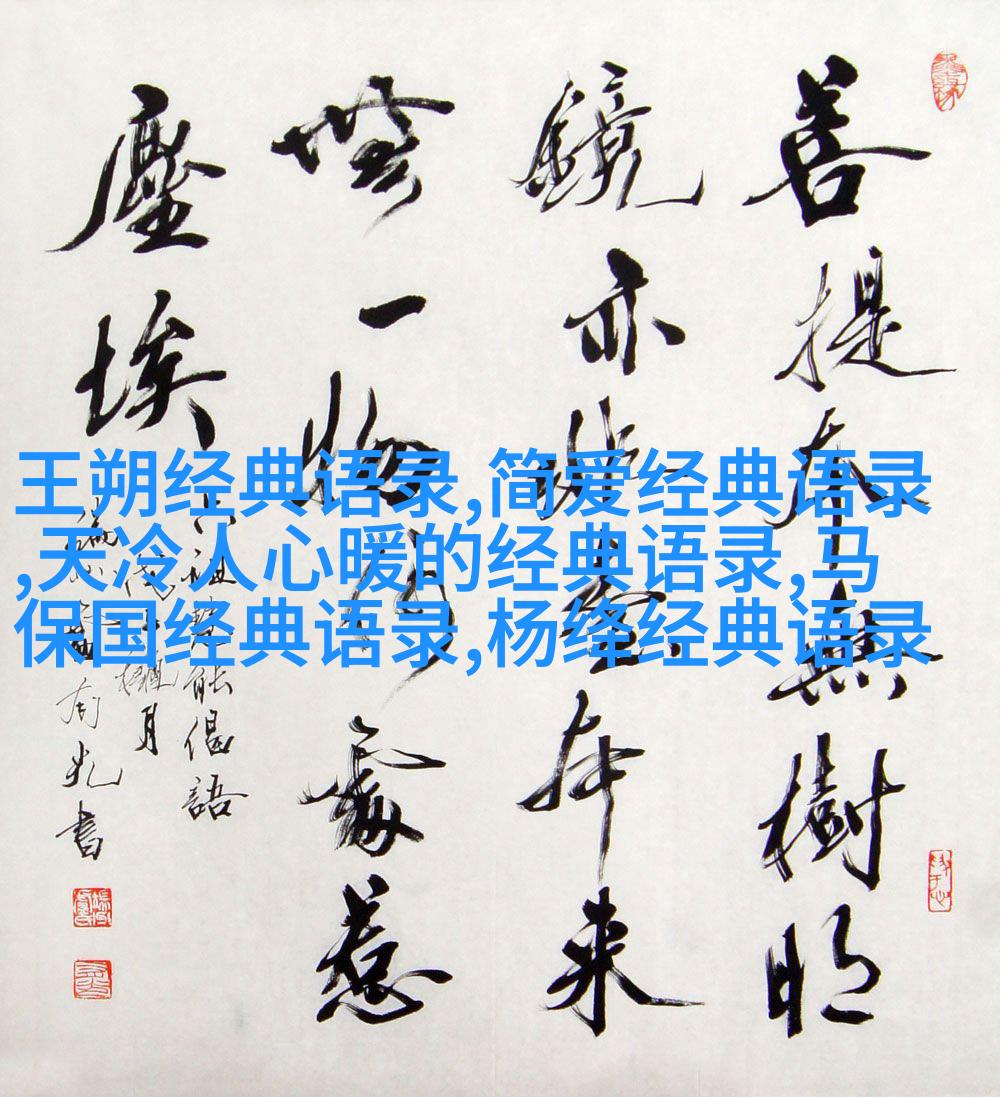 王朔经典语录,简爱经典语录
,天冷人心暖的经典语录,马
保国经典语录,杨绛经典语录
菩提本無樹明
鏡亦非臺本來
無一物何處惹
塵埃
六祖慧能偈語
月
書